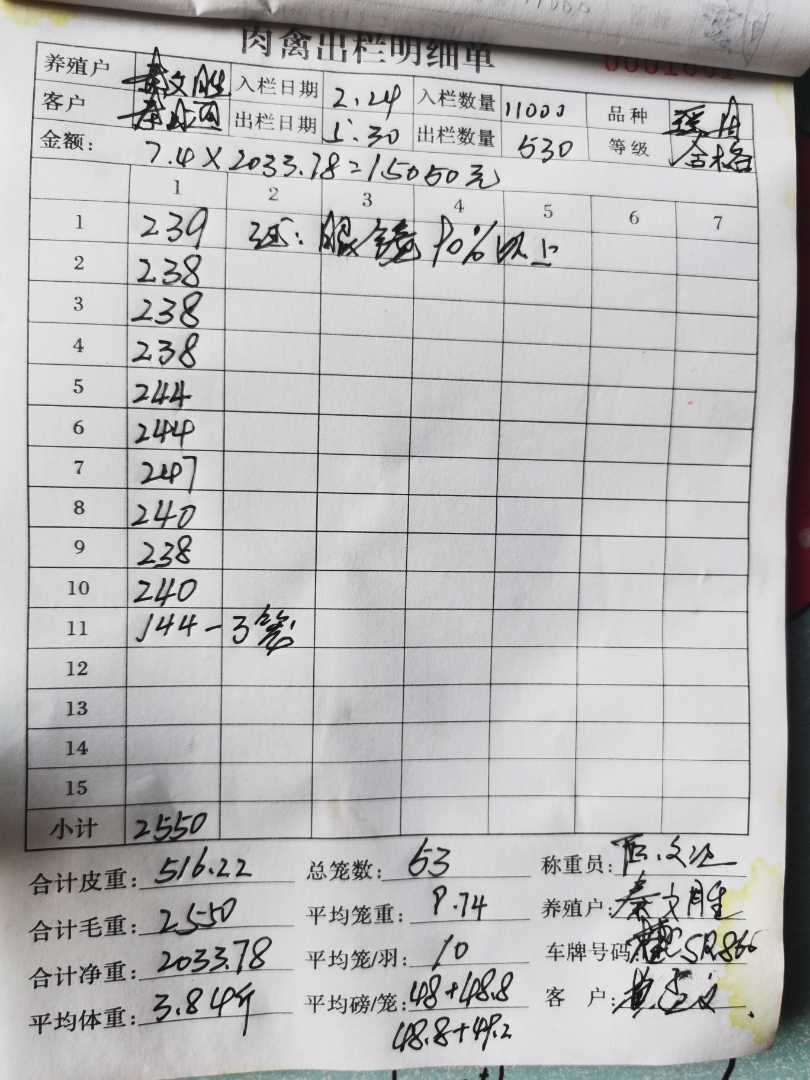 肉禽出栏明细单
养殖户 秦文胜 入栏日期 2.24 入栏数量 11000 品种
客户 出栏日期 5.30 出栏数量 530 等级 合格
金额: 7.4×2033.78=15050元
1 2 3 4 5 6 7
1 239 注: 眼镜90%以上
2 238
3 238
4 238
5 244
6 244
7 247
8 240
9 238
10 240
11 144-3笼
12
13
14
15
小计 2550
合计皮重: 516.22 总笼数: 53 称重员:
合计毛重: 2550 平均笼重: 9.74 养殖户: 秦文胜
合计净重: 2033.78 平均笼/羽: 10 车牌号码:
平均体重: 3.84斤 平均磅/笼: 48+48.8 客 户:
48.8+49.2